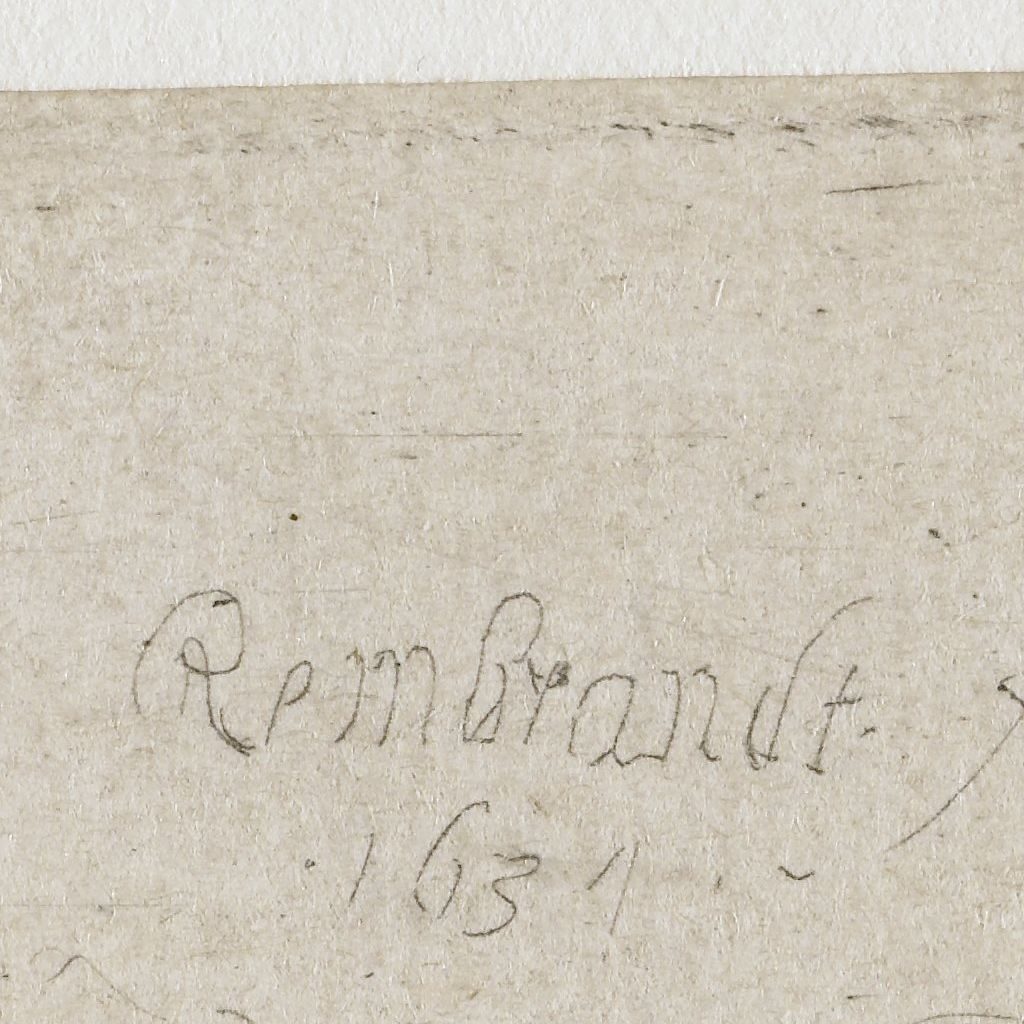 Rembrandt. f
1631